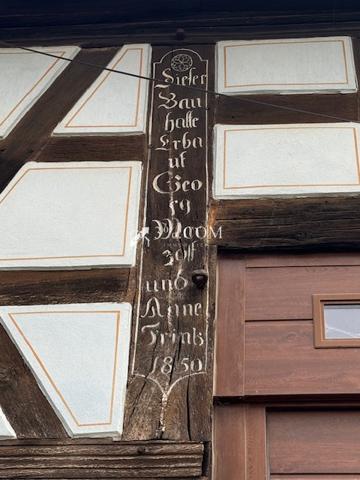 Dieser
Bau
hatte
Erba
ut
Geo
rg
zoll
und
Anne
Trink
1850